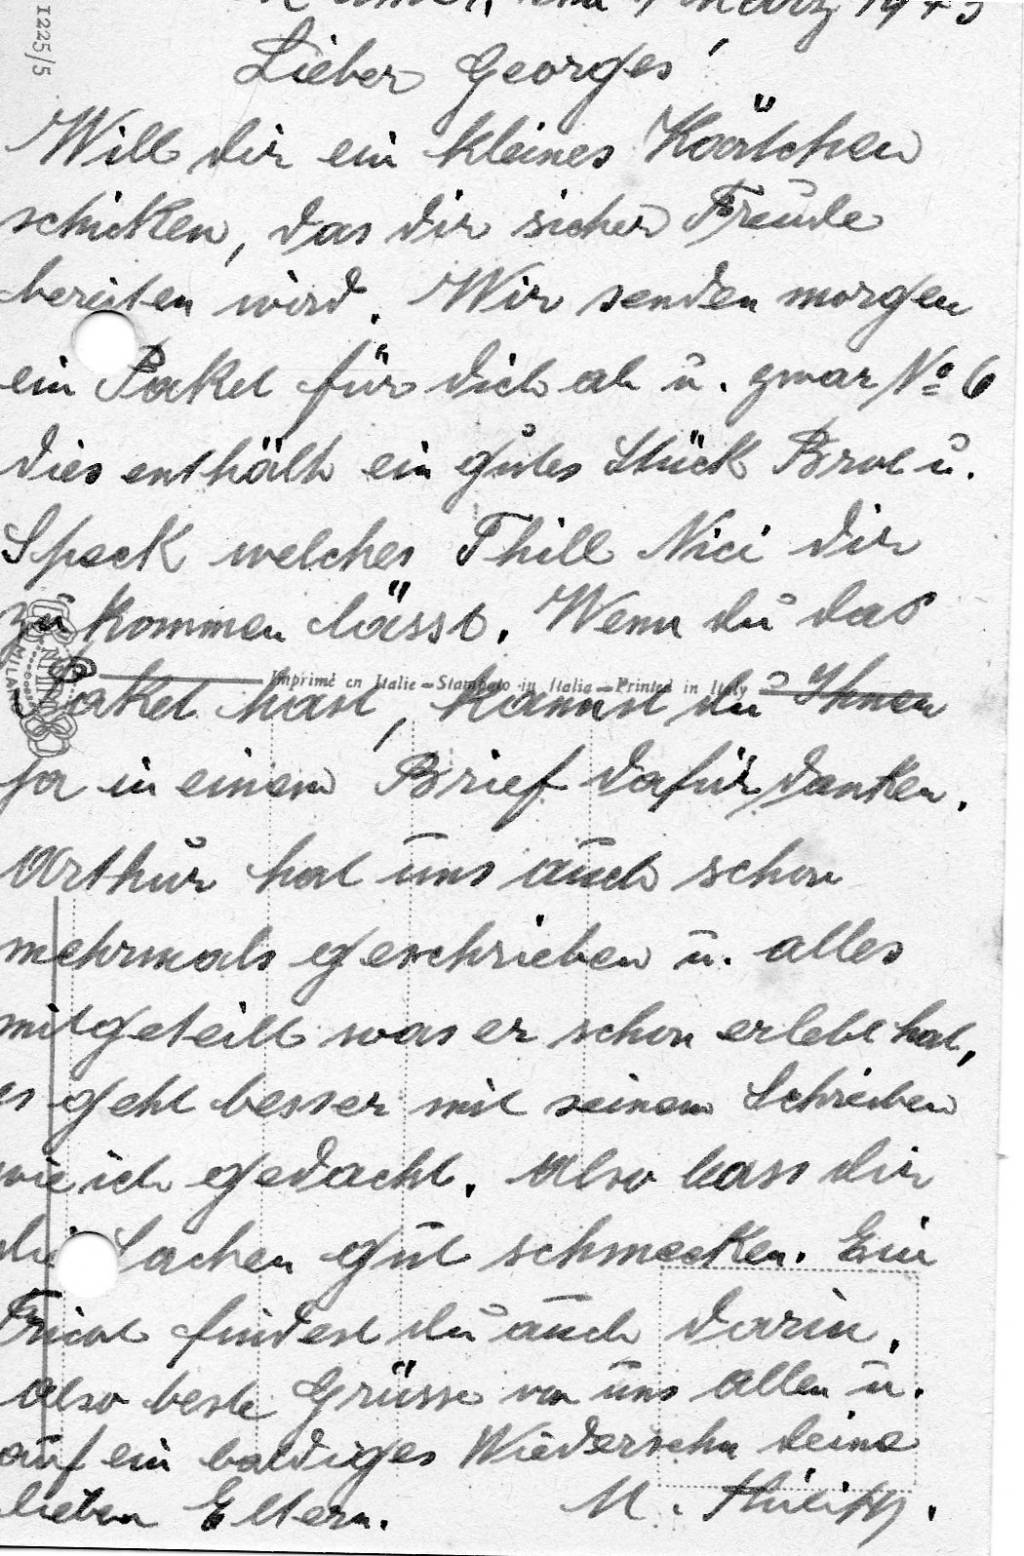 I225/5
den 4 März 1943
Lieber Georges!
Will dir ein kleines Käärtchen
schicken, das dir sicher Freude
bereiten wird. Wir senden morgen
ein Paket für dich ab u. zwar No 6
dies enthält ein gutes Stück Brot u.
Speck welches Thill Nici dir
zu kommen lässt. Wenn du das
Paket hast, kannst du Ihnen
Imprimé en Italie — Stampato in Italia — Printed in Italy
MILAN
ja in einem Brief dafür danken.
Arthur hat uns auch schon
mehrmals geschrieben u. alles
mitgeteilt was er schon erlebt hat,
es geht besser mit seinem Schreiben
wie ich gedacht. Also lass dir
die Sachen gut schmecken. Ein
Tricot findest du auch darin.
Also beste Grüsse von uns allen u.
auf ein baldiges Wiedersehn deine
lieben Eltern. M. Philipp.